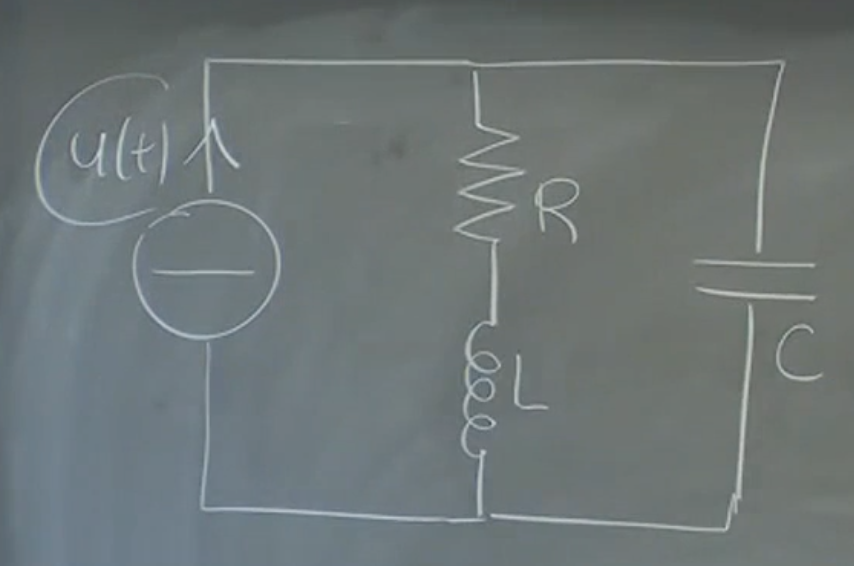 u(t)
R
L
C